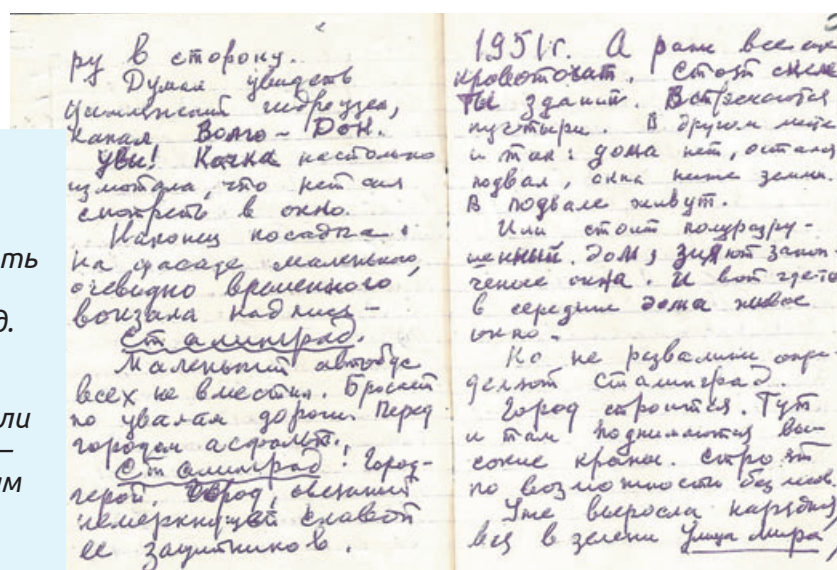 ть
д.
ли
—
м
ру в сторону.
Думал увидеть
Цимлянский гидроузел,
канал Волго-Дон.
Увы! Качка настолько
измотала, что нет сил
смотреть в окно.
Наконец посадка:
на фасаде маленького,
очевидно временного
вокзала надпись —
Сталинград.
Маленький автобус
всех не вместил. Бросает
по увалам дороги. Перед
городом асфальт.
Сталинград! Город-
герой. Город, овеянный
немеркнущей славой
ее защитников.
1951г. А раны все еще
кровоточат. Стоят скеле
ты зданий. Встречаются
пустыри. В другом месте
и так: дома нет, остался
подвал, окна ниже земли.
В подвале живут.
Или стоит полуразру-
шенный дом, зияют закоп-
ченые окна. И вот где-то
в середине дома живое
окно.
Но не развалины опре-
деляют Сталинград.
Город строится. Тут
и там поднимаются вы-
сокие краны. Строят
по возможности без лесов.
Уже выросла нарядная
вся в зелени Улица мира,